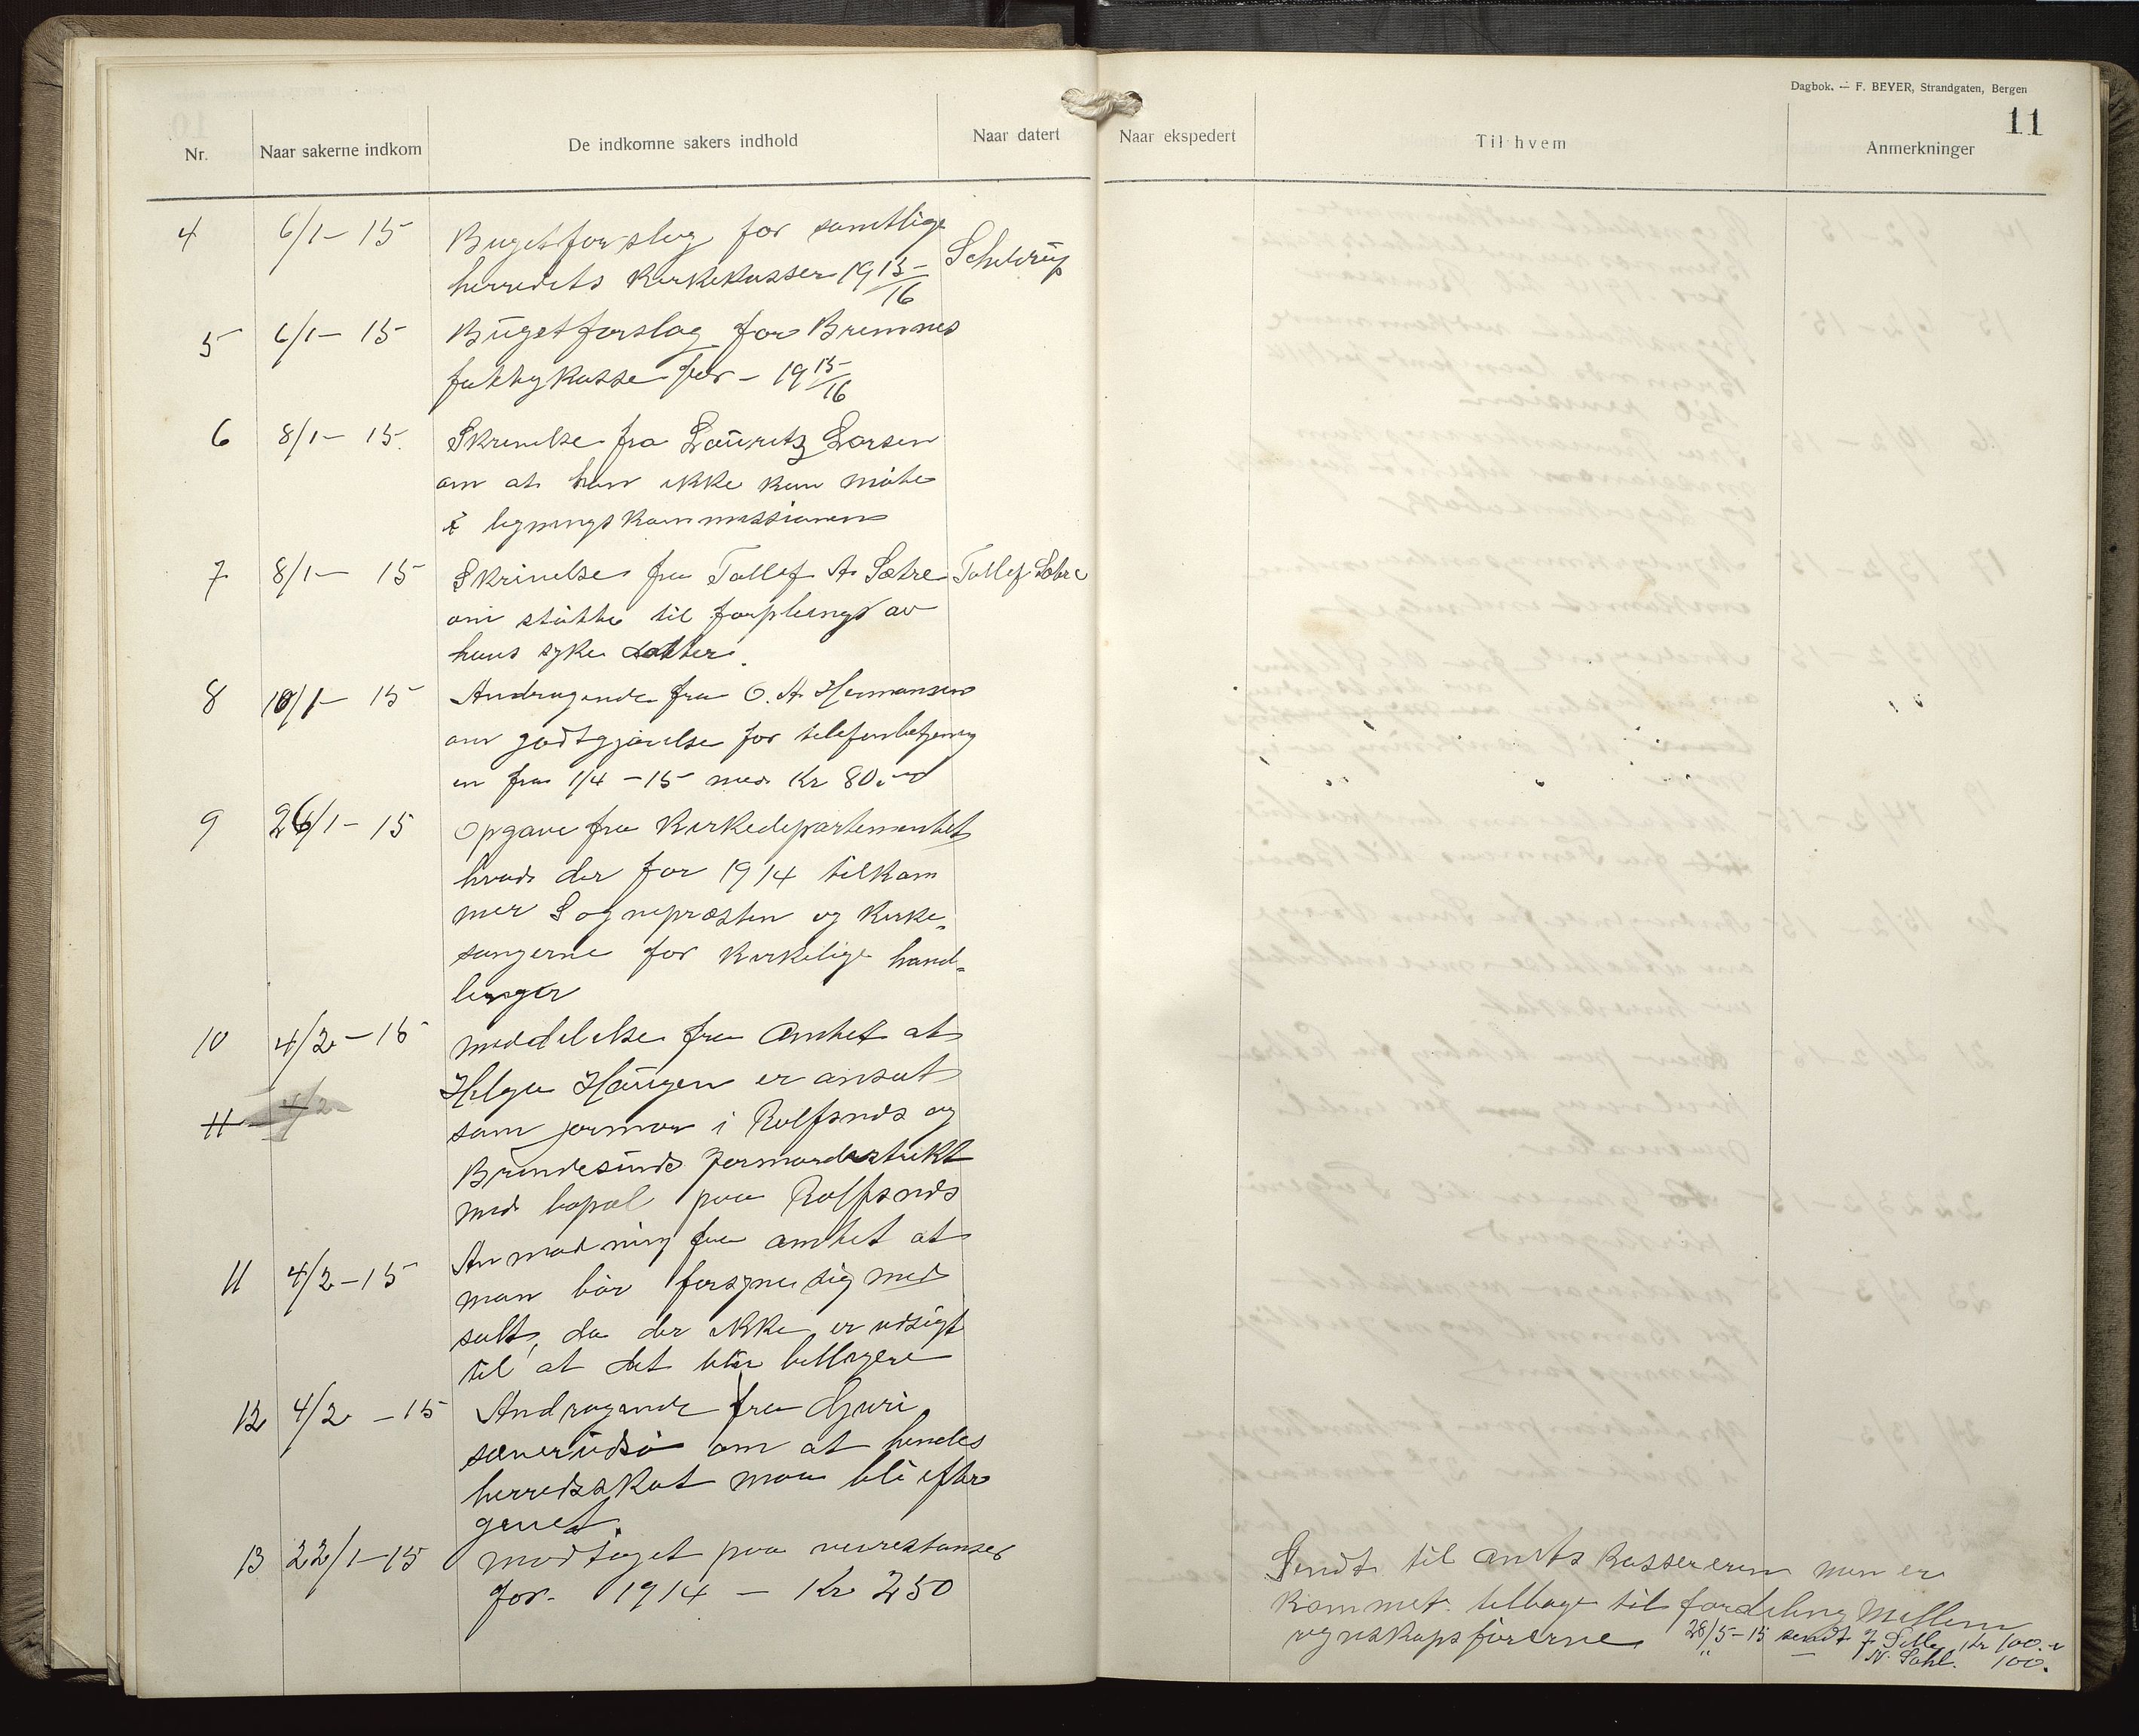 Dagbok. — F. BEYER, Strandgaten, Bergen
11
Nr. Naar sakerne indkom De indkomne sakers indhold Naar datert Naar ekspedert Til hvem Anmerkninger
4 6/1 - 15 Bugetforslag for samtlige
herredets Kirkekasser 1915/16 Scheldrup
5 6/1 - 15 Bugetforslag for Bremnes
fattigkasse for - 1915/16
6 8/1 - 15. Skrivelse fra Lauritz Larsen
om at han ikke kan møte
i ligningskommissionen
7 8/1 - 15 Skrivelse fra Tollef A. Sætre Tollef Sætre
om støtte til forpleining av
hans syke datter.
8 10/1 - 15 Andragende fra O. A. Hermansen
om godtgjørelse for telefonbetjening
en fra 1/4 - 15 med Kr 80.-
9 26/1 - 15 Opgave fra Kirkedepartementet
hvad der for 1914 tilkom
mer Sognepræsten og Kirke-
sangerne for Kirkelige hand-
linger
10 4/2 - 15 meddelelse fra Amtet at
Helga Haugen er ansat
11 4/2
som jormor i Rolfsnes og
Brandesunds jormordistrikt
med bopæl paa Rolfsnes
11 4/2 - 15 Anmodning fra amtet at
man bør forsyne sig med
salt, da der ikke er utsigt
til at det blir billigere
12 4/2 - 15 Andragende fra Guri
sæverudsø om at hendes
herredsskat maa bli efter
gevet.
13 22/1 - 15 modtaget paa veirestanser
for 1914 - Kr 250
Sendt til amtskassereren men er
kommet tilbage til fordeling mellem
regnskapsførerne 28/5 - 15 sendt Kr 100.-
" — N. Dahl. 100.